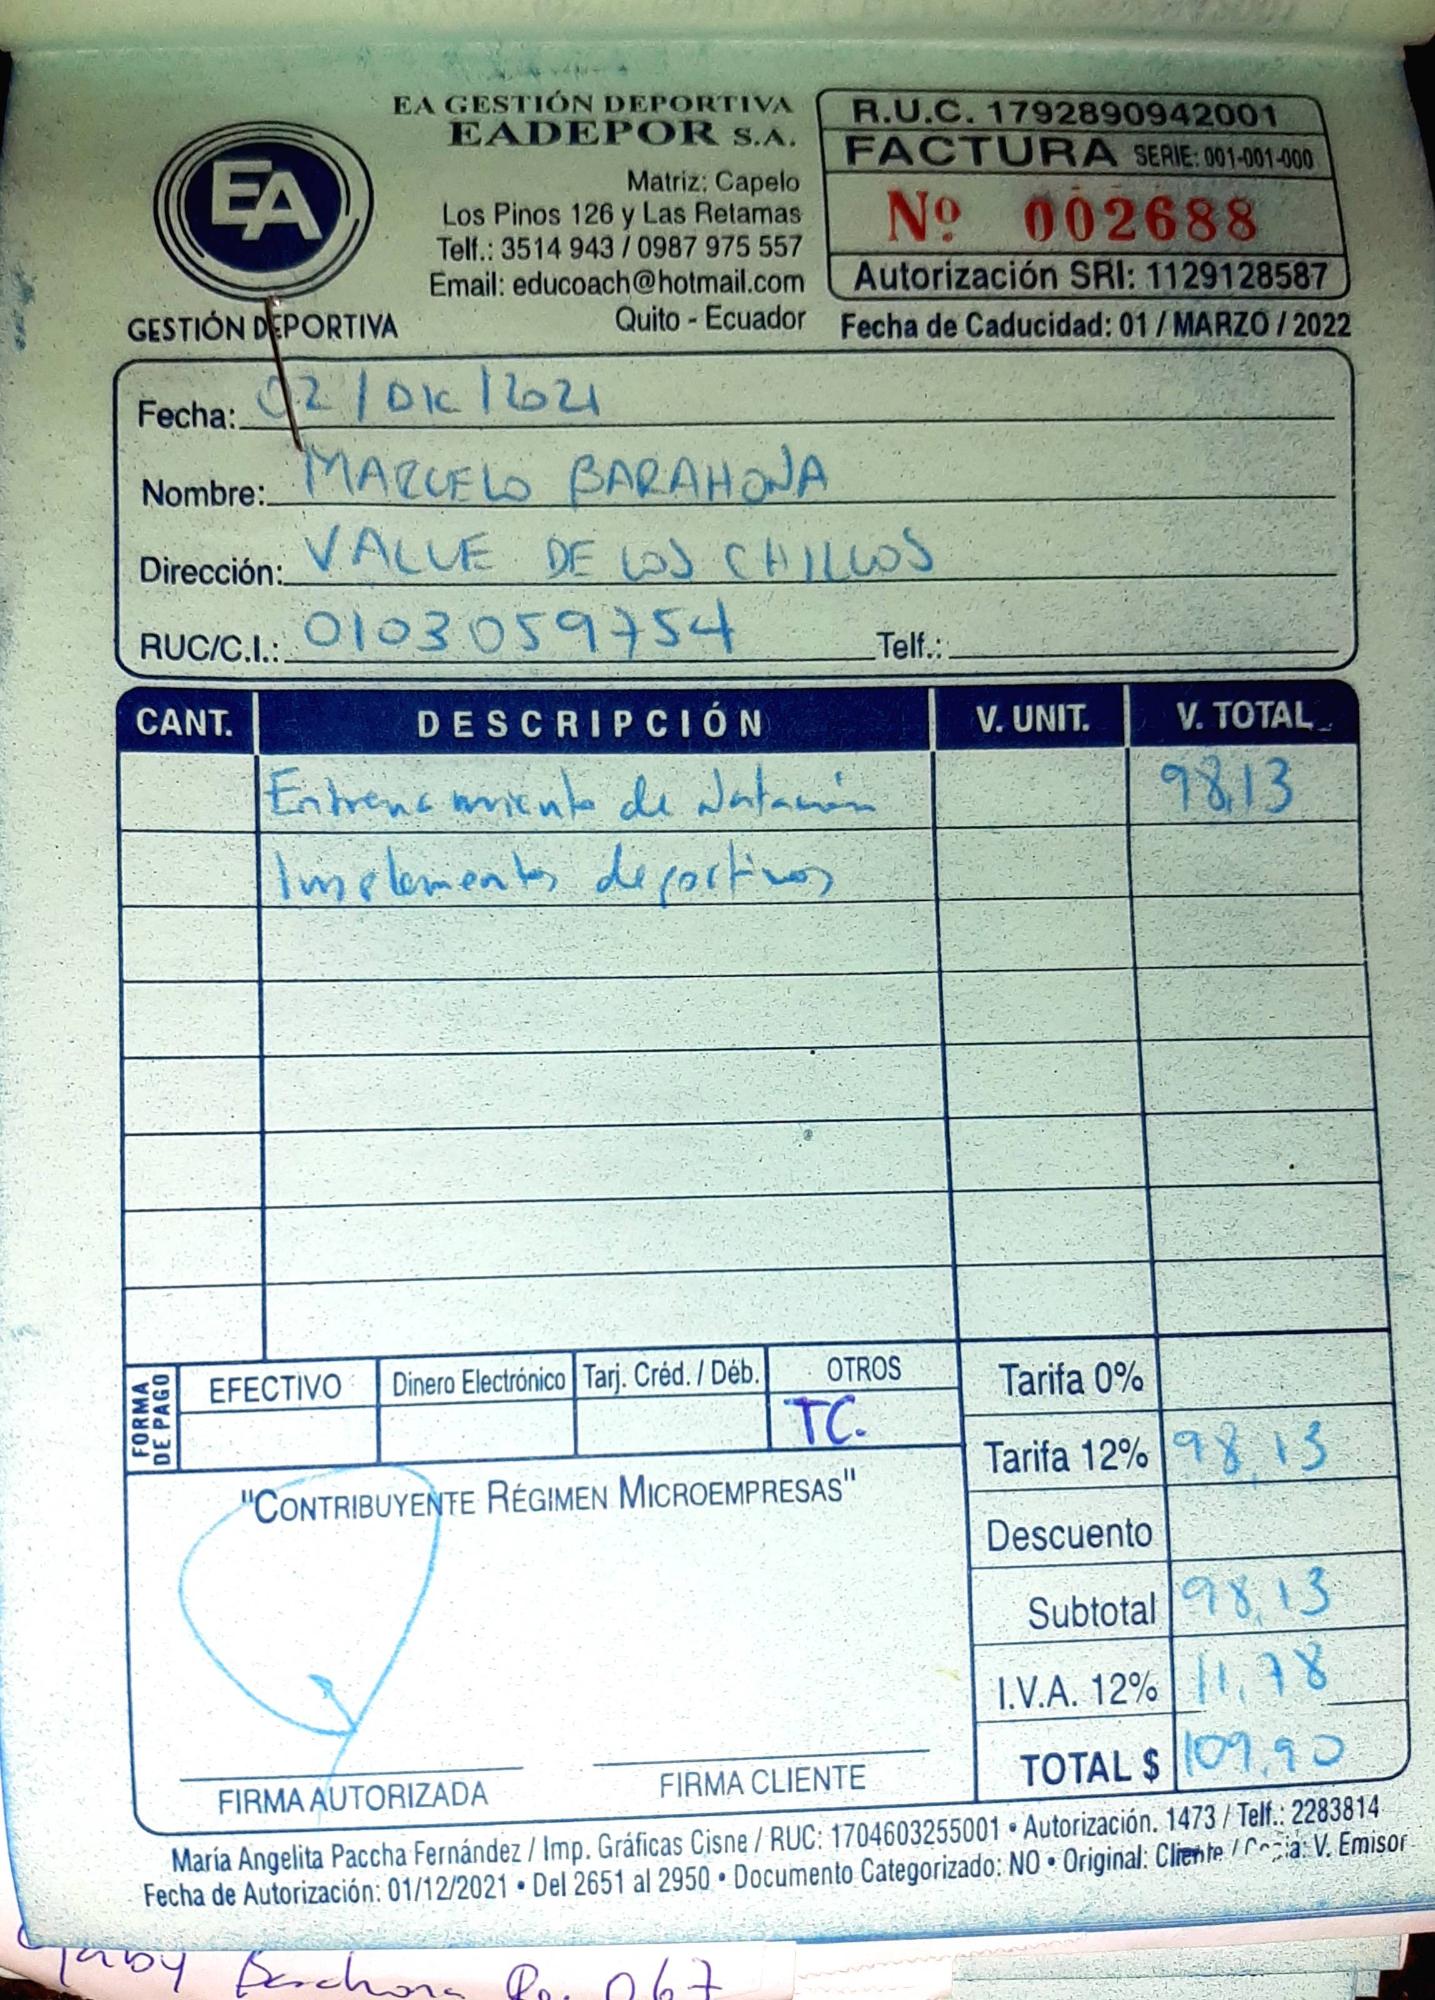 EA GESTIÓN DEPORTIVA
EADEPOR S.A.
Matriz: Capelo
Los Pinos 126 y Las Retamas
Telf.: 3514 943 / 0987 975 557
Email: educoach@hotmail.com
Quito - Ecuador
EA
GESTIÓN DEPORTIVA
R.U.C. 1792890942001
FACTURA SERIE: 001-001-000
Nº 002688
Autorización SRI: 1129128587
Fecha de Caducidad: 01 / MARZO / 2022
Fecha: 02 / DIC / 2021
Nombre: MARCELO BARAHONA
Dirección: VALLE DE LOS CHILLOS
RUC/C.I.: 0103059754 Telf.:
CANT. DESCRIPCIÓN V. UNIT. V. TOTAL
Entrenamiento de Natación 98,13
Implementos deportivos
FORMA DE PAGO
EFECTIVO Dinero Electrónico Tarj. Créd. / Déb. OTROS
TC.
Tarifa 0%
Tarifa 12% 98,13
Descuento
Subtotal 98,13
I.V.A. 12% 11,78
TOTAL $ 109,90
"CONTRIBUYENTE RÉGIMEN MICROEMPRESAS"
FIRMA AUTORIZADA FIRMA CLIENTE
María Angelita Paccha Fernández / Imp. Gráficas Cisne / RUC: 1704603255001 • Autorización. 1473 / Telf.: 2283814
Fecha de Autorización: 01/12/2021 • Del 2651 al 2950 • Documento Categorizado: NO • Original: Cliente / Copia: V. Emisor
Gaby Barahona 067